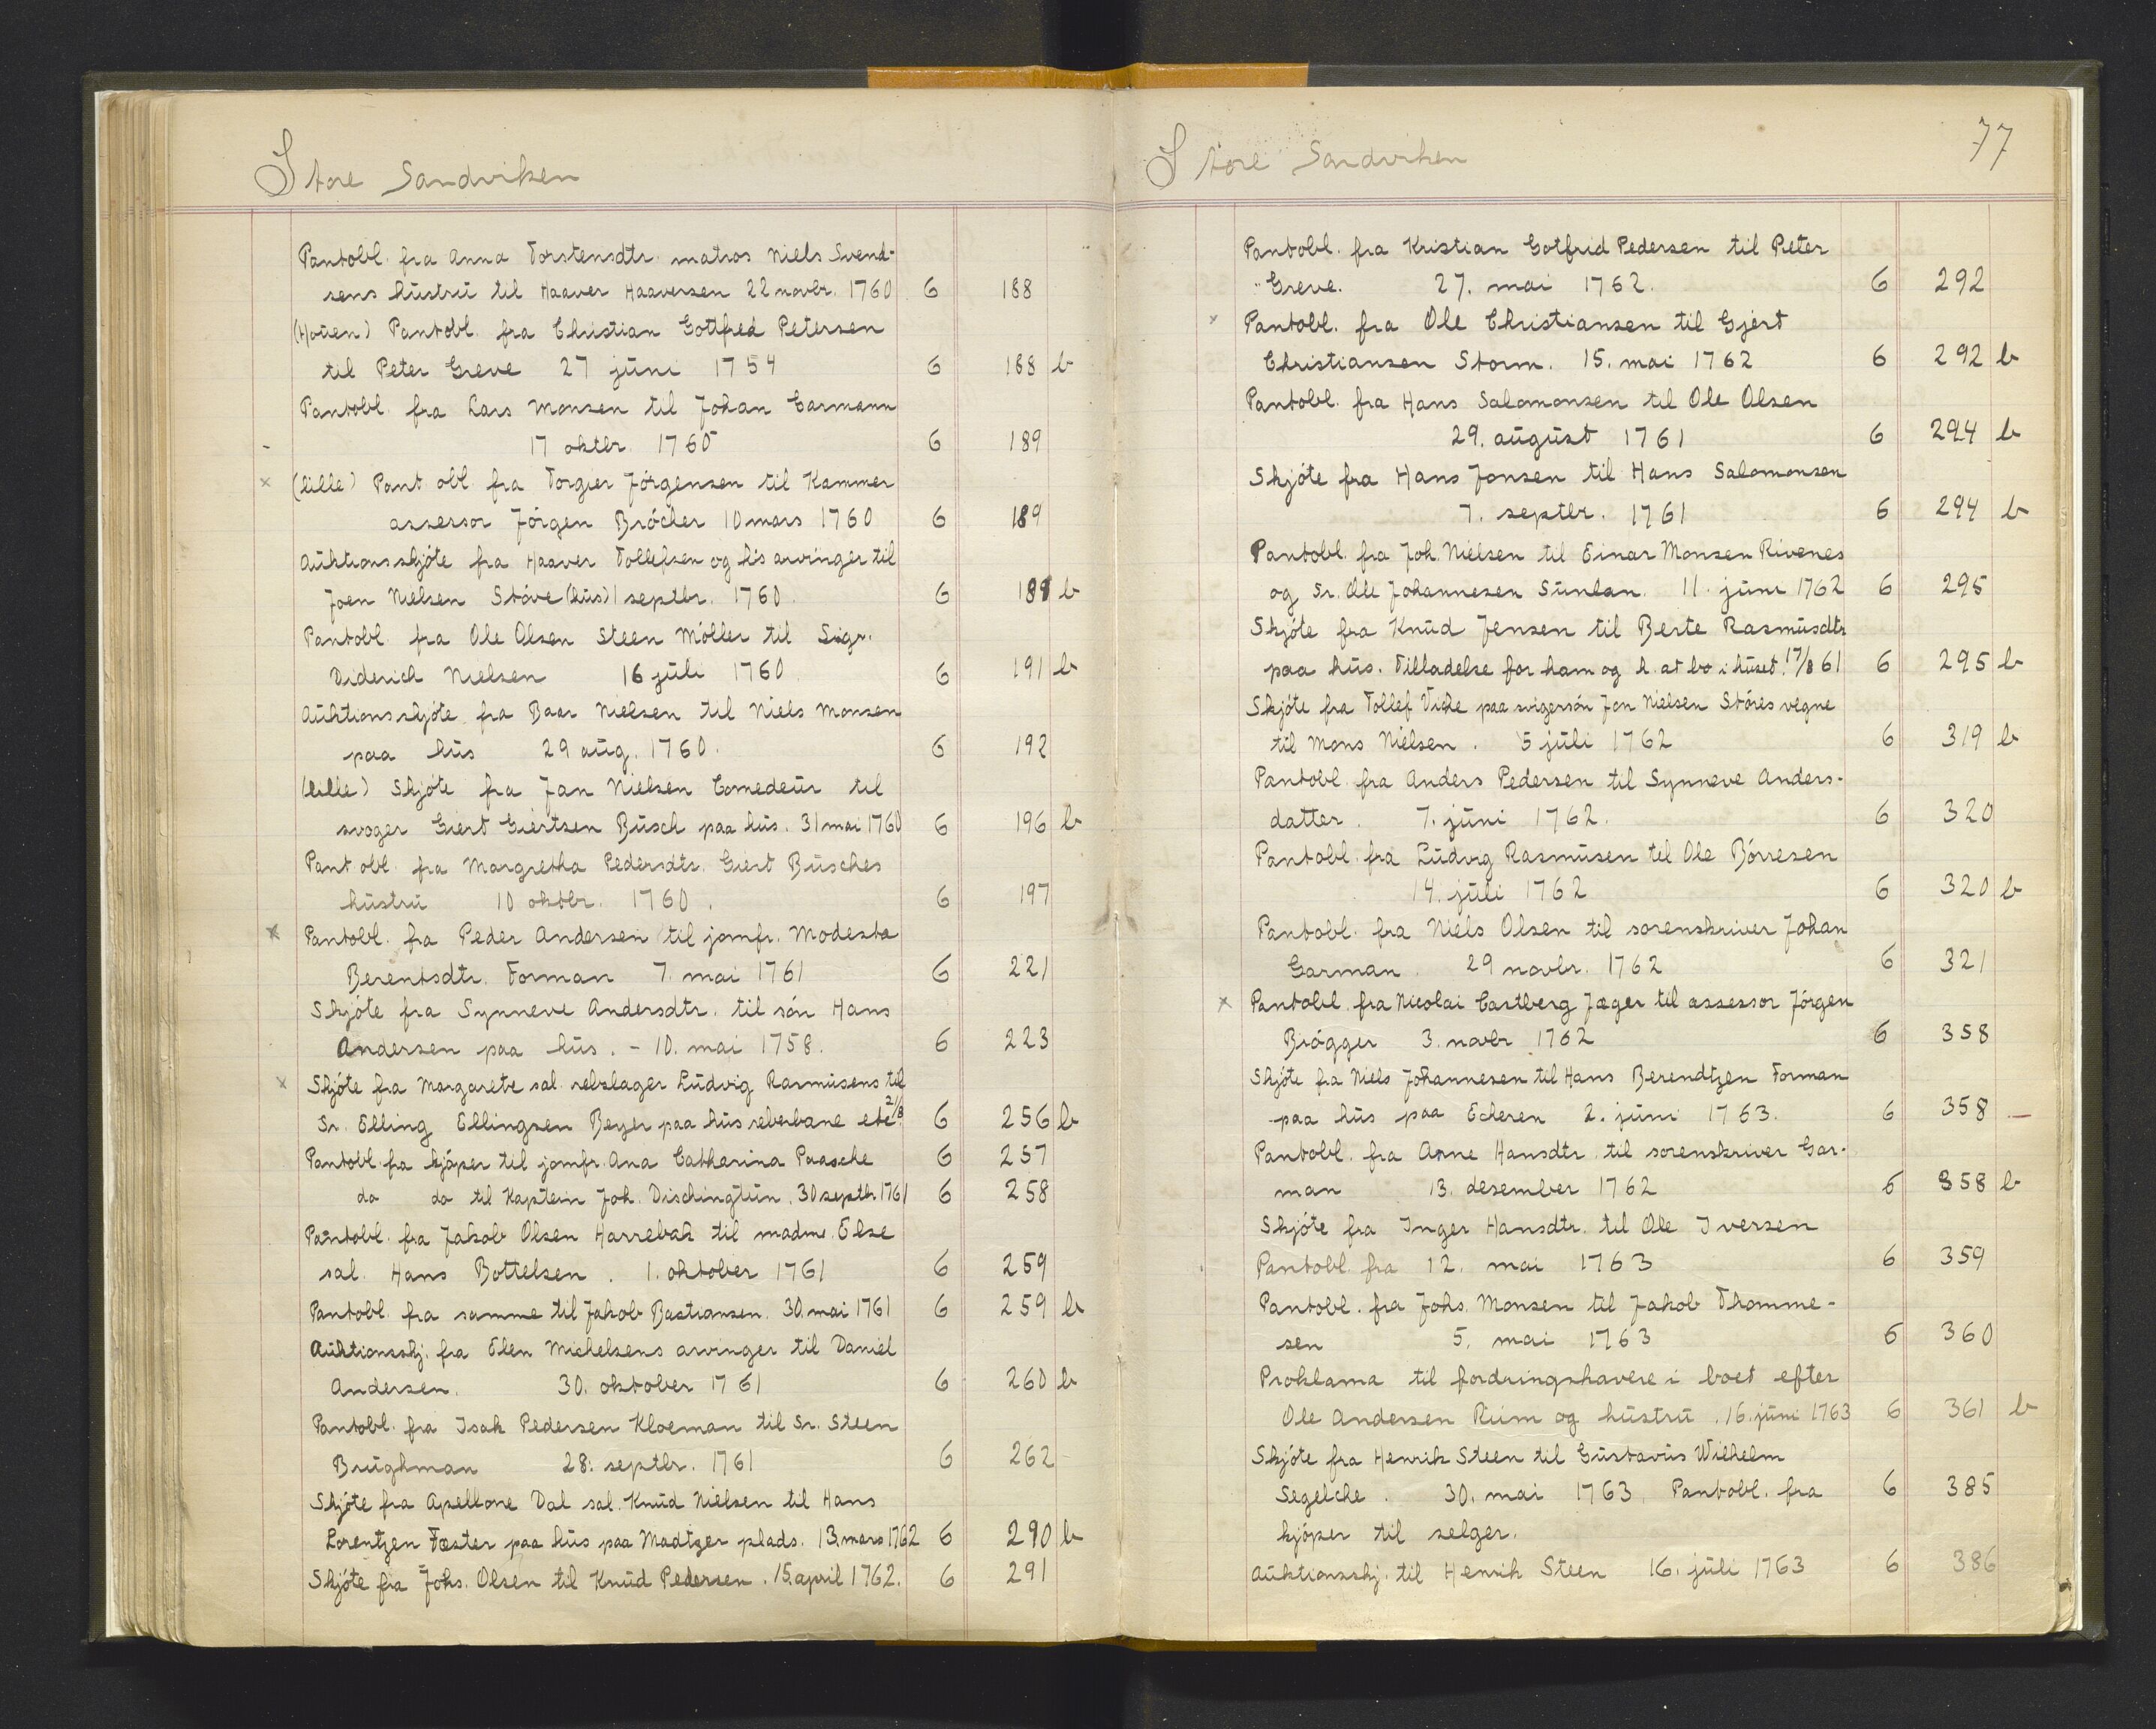 Store Sandviken
Pantobl. fra Anna Torstensdtr. matros Niels Svend-
sens hustru til Haaver Haaversen 22 novbr. 1760 6 188
(Houen) Pantobl. fra Christian Gottfred Petersen
til Peter Greve 27 juni 1754 6 188 b
Pantobl. fra Lars Monsen til Johan Garmann
- 17 oktbr. 1760 6 189
x (lille) Pant obl. fra Torgier Jörgensen til Kammer
assessor Jörgen Bröcher 10 mars 1760 6 189
Auktionsskjöte fra Haaver Tollefsen og hs arvinger til
Joen Nielsen Stöve (hus) 1 septbr. 1760. 6 189 b
Pantobl. fra Ole Olsen Steen Möller til Sigr.
Diderich Nielsen 16 juli 1760. 6 191 b
Auktionsskjöte fra Baar Nielsen til Niels Monsen
paa hus 29 aug. 1760. 6 192
(lille) Skjöte fra Jan Nielsen Comedeur til
svoger Giert Giertsen Busch paa hus. 31 mai 1760 6 196 b
Pant obl. fra Margretha Pedersdtr. Giert Busches
hustru 10 oktbr. 1760. 6 197
x Pantobl. fra Peder Andersen til jomfr. Modesta
Berentsdtr. Forman 7. mai 1761 6 221
Skjöte fra Synneve Andersdtr. til sön Hans
Andersen paa hus. - 10. mai 1758. 6 223
x Skjöte fra Margarete sal. rebslager Ludvig Rasmusens til
Sr. Elling Ellingsen Beyer paa hus reberbane etc. 2/8 6 256 b
Pantobl. fra kjöper til jomfr. Ana Catharina Paasche 6 257
do do til Kaptein Joh. Dischingtun. 30 septbr. 1761 6 258
Pantobl. fra Jakob Olsen Harrebak til madme. Else
sal. Hans Bottelsen. 1. oktober 1761 6 259
Pantobl. fra samme til Jakob Bastiansen. 30. mai 1761 6 259 b
Auktionsskj. fra Elen Michelsens arvinger til Daniel
Andersen. 30. oktober 1761 6 260 b
Pantobl. fra Isak Pedersen Kloeman til Sr. Steen
Brughman 28. septbr. 1761 6 262
Skjöte fra Apellone Dal sal. Knud Nielsen til Hans
Lorentzen Fæster paa hus paa Madtzer plads. 13. mars 1762 6 290 b
Skjöte fra Johs. Olsen til Knud Pedersen. 15. april 1762. 6 291
77
Store Sandviken
Pantobl. fra Kristian Gotfrid Pedersen til Peter
Greve. 27. mai 1762. 6 292
x Pantobl. fra Ole Christiansen til Gjert
Christiansen Storm. 15. mai 1762 6 292 b
Pantobl. fra Hans Salomonsen til Ole Olsen
29. august 1761 6 294 b
Skjöte fra Hans Jonsen til Hans Salomonsen
7. septbr. 1761 6 294 b
Pantobl. fra Joh. Nielsen til Einar Monsen Rivenes
og Sr. Ole Johannesen Sunlan. 11. juni 1762 6 295
Skjöte fra Knud Jensen til Berte Rasmusdtr
paa hus. Tilladelse for ham og h. at bo i huset. 17/8 61 6 295 b
Skjöte fra Tollef Vide paa svigersön Jon Nielsen Störes vegne
til Mons Nielsen. 5 juli 1762 6 319 b
Pantobl. fra Anders Pedersen til Synneve Anders-
datter. 7. juni 1762. 6 320
Pantobl. fra Ludvig Rasmusen til Ole Börresen
14. juli 1762 6 320 b
Pantobl. fra Niels Olsen til sorenskriver Johan
Garman. 29 novbr. 1762 6 321
x Pantobl. fra Nicolai Castberg Jæger til assessor Jörgen
Brögger 3. novbr 1762 6 358
Skjöte fra Niels Johannesen til Hans Berendtzen Forman
paa hus paa Eckeren 2. juni 1763. 6 358 —
Pantobl. fra Anne Hansdtr. til sorenskriver Gar-
man 13. desember 1762 6 358 b
Skjöte fra Inger Hansdtr. til Ole Iversen
Pantobl. fra 12. mai 1763 6 359
Pantobl. fra Johs. Monsen til Jakob Thomme-
sen 5. mai 1763 6 360
Proklama til fordringshavere i boet efter
Ole Andersen Riim og hustru. 16. juni 1763 6 361 b
Skjöte fra Henrik Steen til Gustavus Wilhelm
Segelche. 30. mai 1763. Pantobl. fra 6 385
kjöper til selger.
Auktionsskj. til Henrik Steen 16. juli 1763 6 386